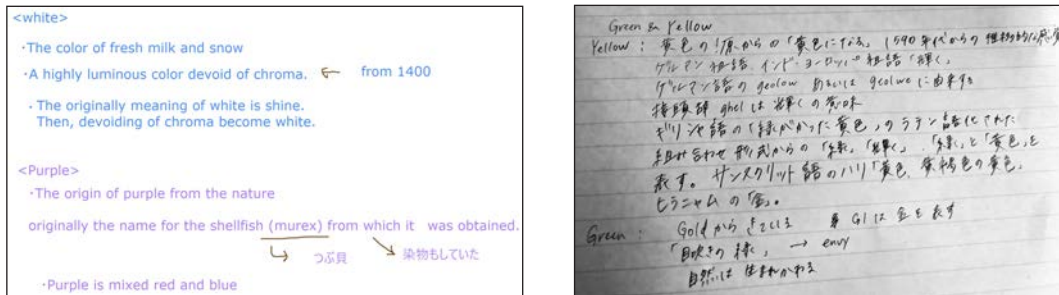 <white>
・The color of fresh milk and snow
・A highly luminous color devoid of chroma. ← from 1400
・The originally meaning of white is shine.
Then, devoiding of chroma become white.
<Purple>
・The origin of purple from the nature
originally the name for the shellfish (murex) from which it was obtained.
つぶ貝 染物もしていた
・Purple is mixed red and blue
Green & Yellow
Yellow : 黄色の 原からの「黄色になる」 1590年代からの
ゲルマン祖語 インド・ヨーロッパ祖語「輝く」
ゲルマン語の geolow あるいは geolwe に由来する
接頭辞 ghel は輝くの意味
ギリシャ語の「緑がかった黄色」のラテン語化された
組み合わせ形式からの「緑」「輝く」、「緑」と「黄色」を
表す。サンスクリット語のハリ「黄色、黄褐色の黄色」
ヒラニャムの「金」。
Green : Goldからきている Glは金を表す
「芽吹きの緑」 → envy
自然は生まれかわる